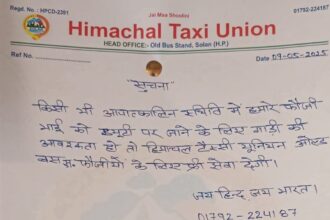 Regd. No. : HPCD-2391
Jai Maa Shoolini
01792-224187
Himachal Taxi Union
HEAD OFFICE:- Old Bus Stand, Solan (H.P.)
Ref No.
Date 09-05-2025
"सुचना"
किसी भी आपातकालिन स्थिति में हमारे फौजी
भाई को ड्युटी पर जाने के लिए गाडी की
आवश्यकता हो तो हिमाचल टैक्सी युनियन ओल्ड
बस स्. फौजीयों के लिए फ्री सेवा देगी।
जय हिन्द जय भारत।
01792-224187